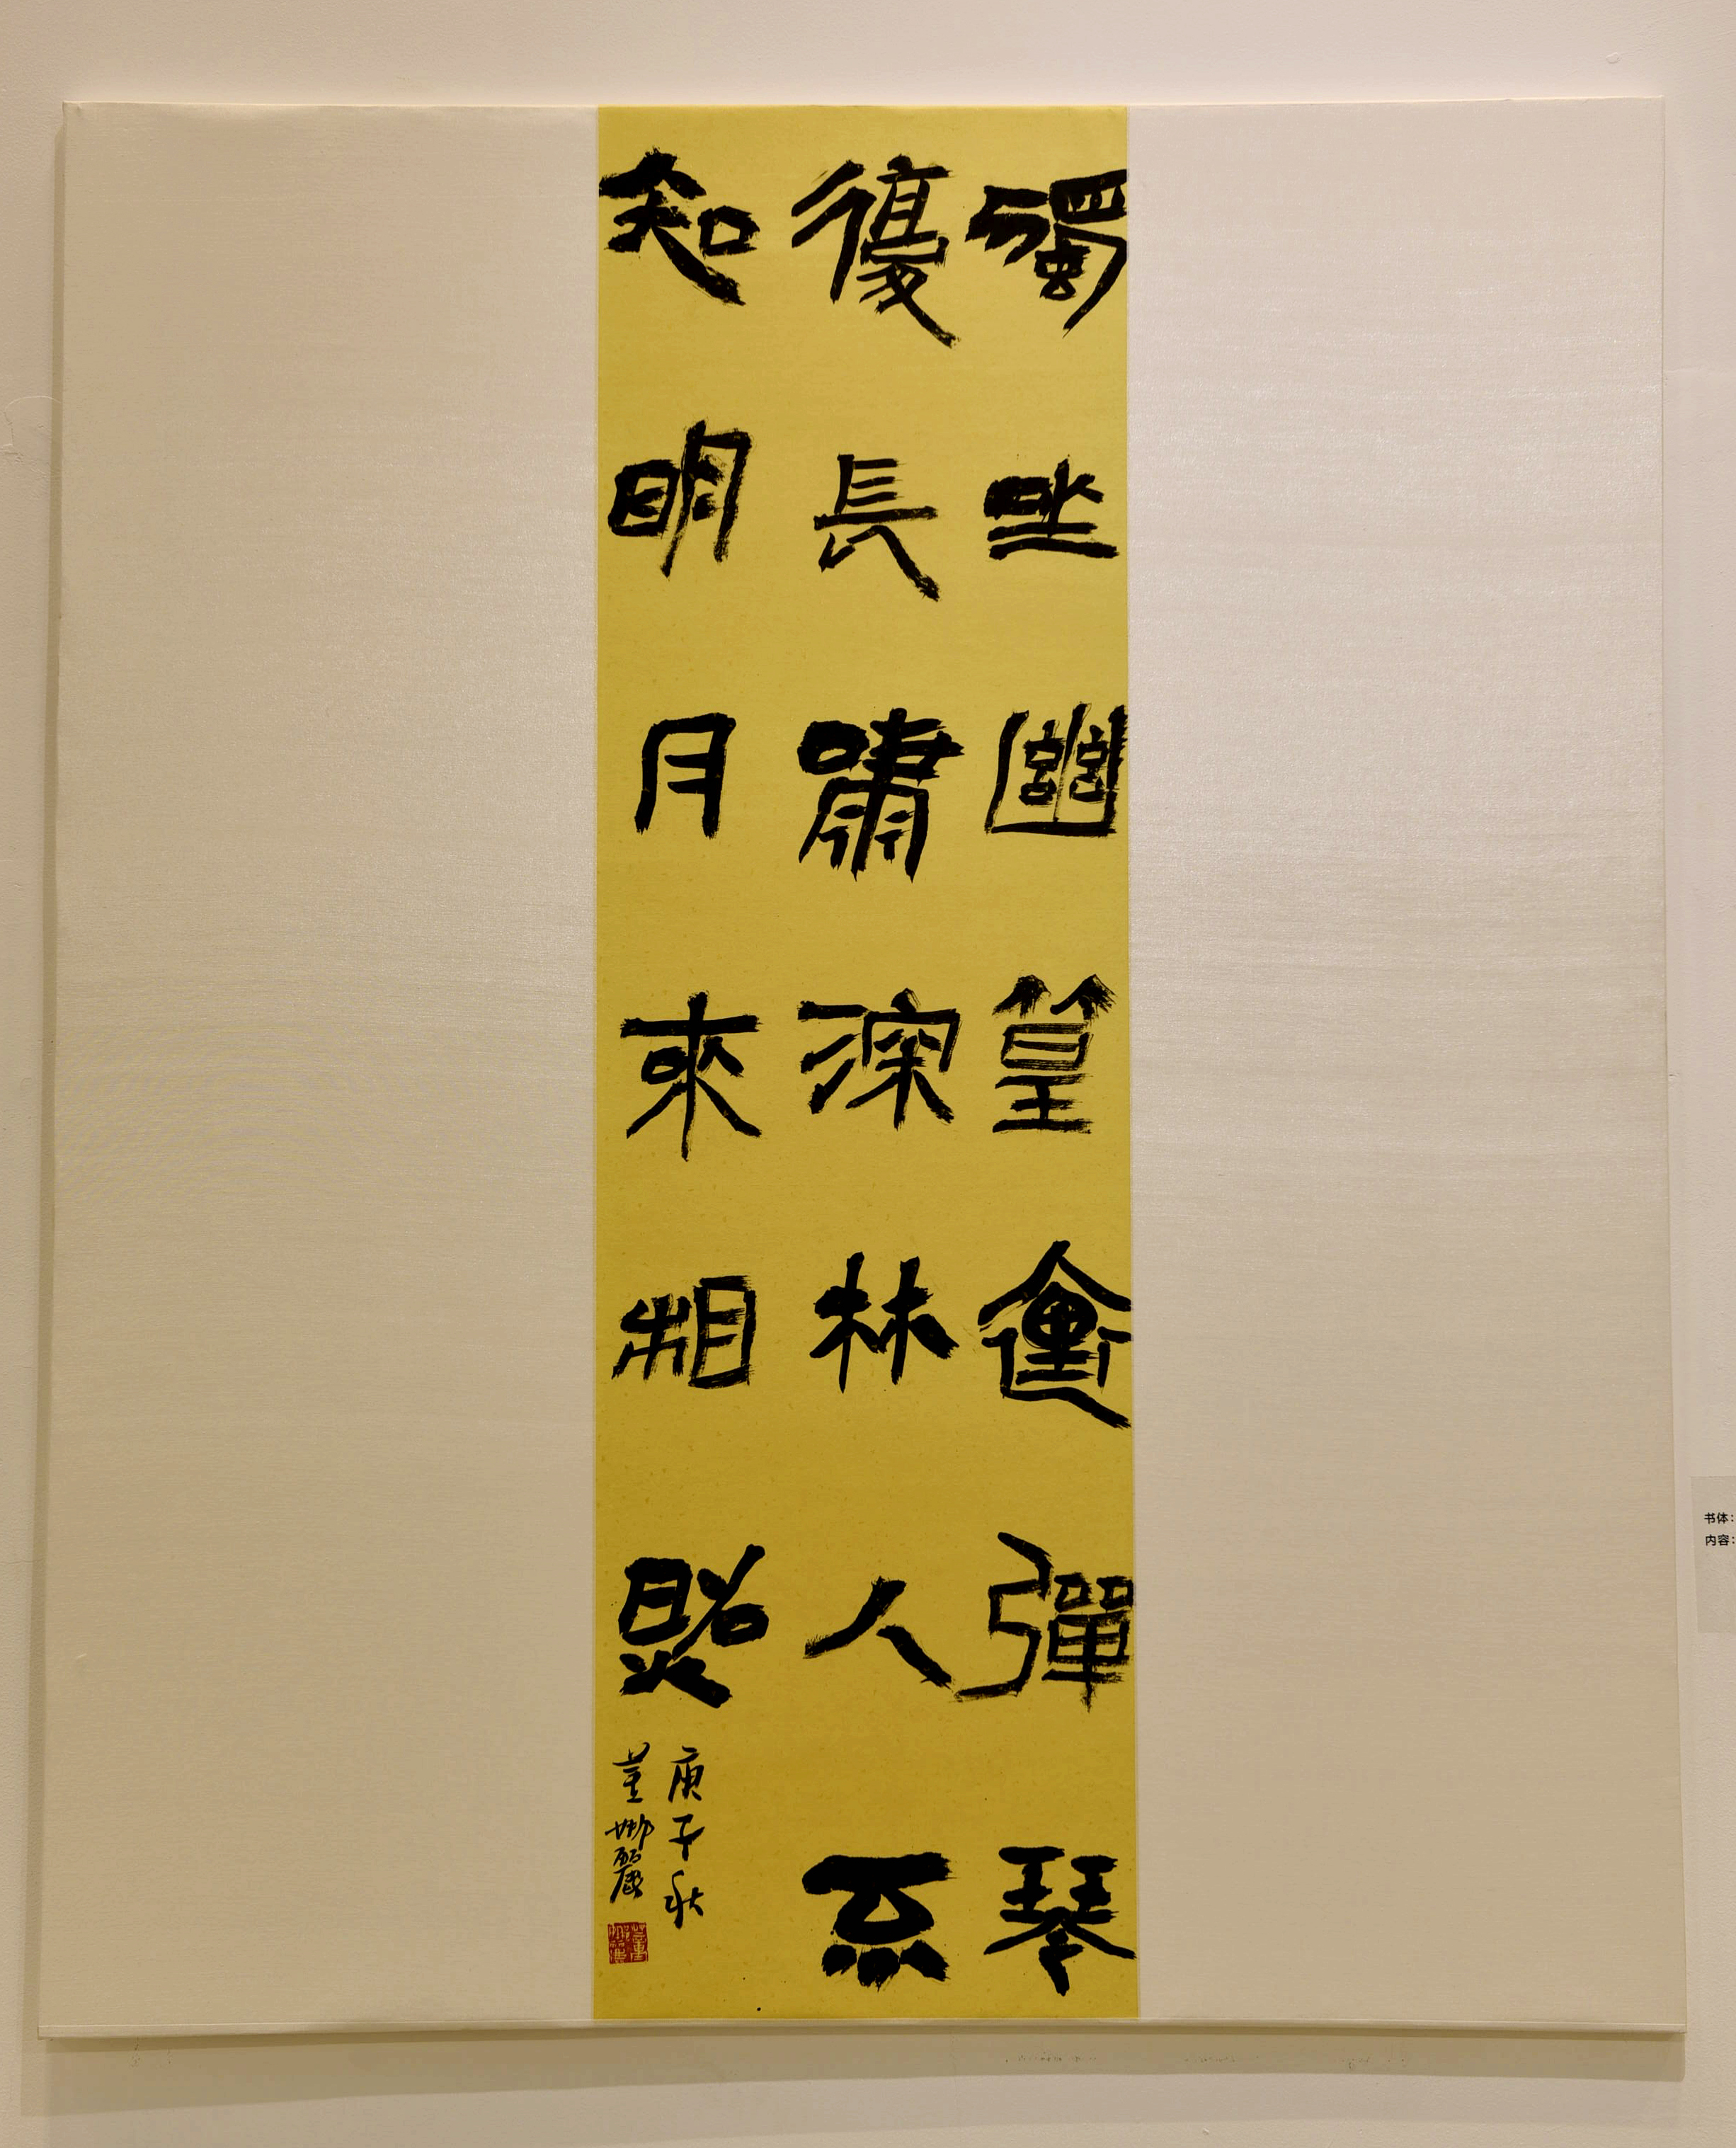 獨坐幽篁裏彈琴
復長嘯深林人不
知明月來相照
庚子秋
董娜麗
书体:
内容: